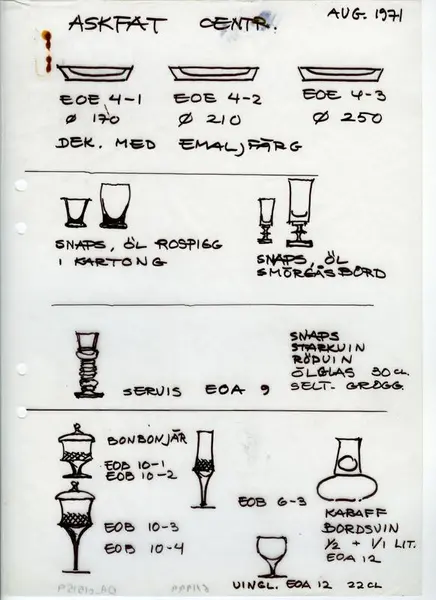 AUG. 1971
ASKFAT CENTR.
EOE 4-1 EOE 4-2 EOE 4-3
Ø 170 Ø 210 Ø 250
DEK. MED EMALJFÄRG
SNAPS, ÖL ROSPIGG
I KARTONG
SNAPS, ÖL
SMÖRGÅSBORD
SNAPS
STARKVIN
RÖDVIN
ÖLGLAS 30 CL.
SELT- GROGG.
SERVIS EOA 9
BONBONJÄR
EOB 10-1
EOB 10-2
EOB 10-3
EOB 10-4
EOB 6-3
KARAFF
BORDSVIN
1/2 + 1/1 LIT.
EOA 12
VINGL. EOA 12 22 CL